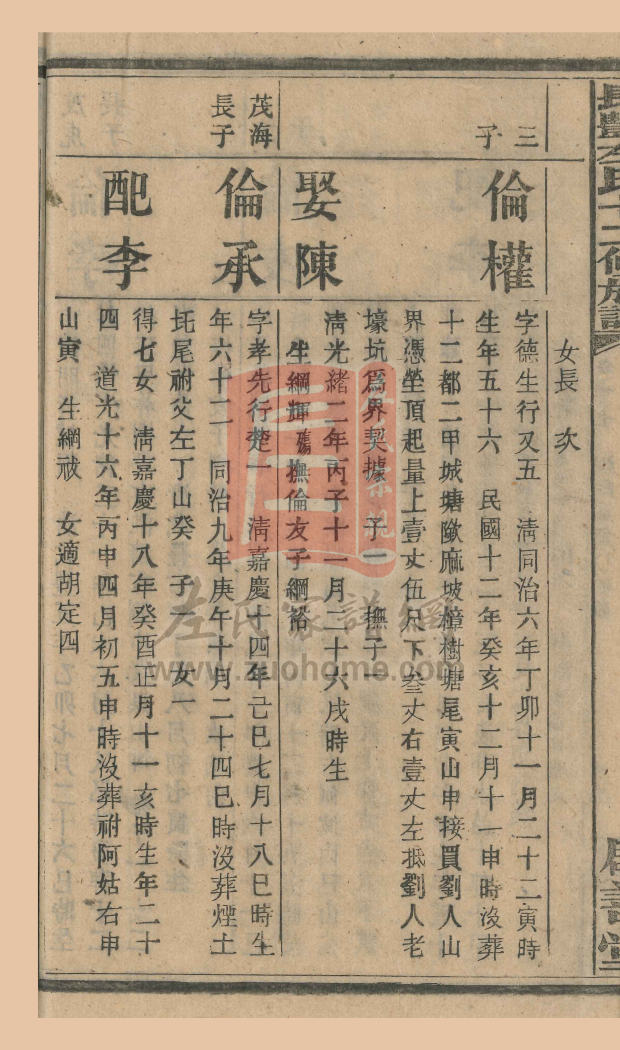 長豐左氏十二修族譜
啟善堂
女長　次
三子
倫權
字德生行又五　淸同治六年丁卯十一月二十二寅時
生年五十六　民國十二年癸亥十二月十一申時沒葬
十二都二甲城塘歐麻坡樟樹塘尾寅山申接買劉人山
界憑塋頂起量上壹丈伍尺下叁丈右壹丈左抵劉人老
壕坑爲界契據　子一　撫子一
娶陳
淸光緒二年丙子十一月二十六戌時生
生綱輝殤撫倫友子綱裕
茂海長子
倫承
字孝先行楚一　淸嘉慶十四年己巳七月十八巳時生
年六十二　同治九年庚午十月二十四巳時沒葬煙土
圫尾祔父左丁山癸　子一　女一
配李
得七女　淸嘉慶十八年癸酉正月十一亥時生年二十
四　道光十六年丙申四月初五申時沒葬祔阿姑右申
山寅　生綱祓　女適胡定四
左氏家譜網
www.zuohome.com